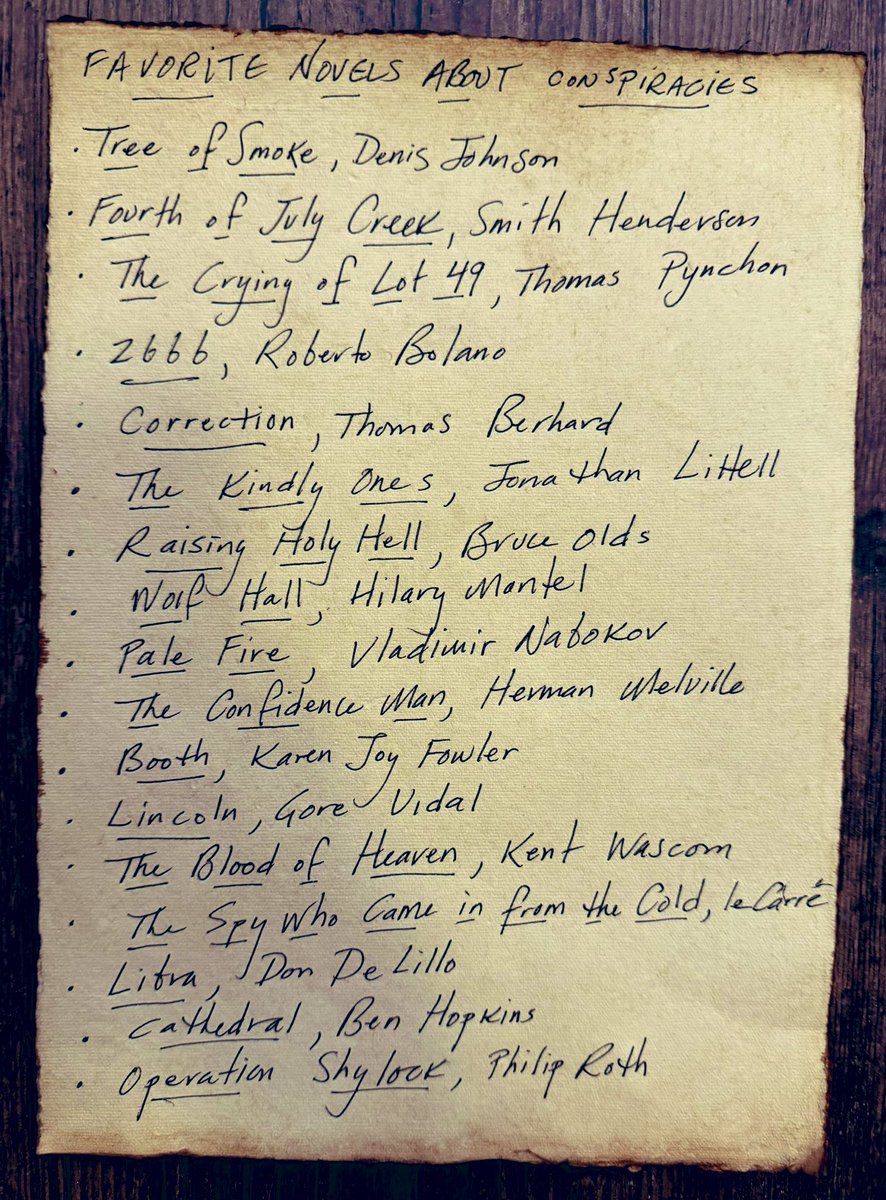 FAVORITE NOVELS ABOUT CONSPIRACIES
· Tree of Smoke, Denis Johnson
· Fourth of July Creek, Smith Henderson
· The Crying of Lot 49, Thomas Pynchon
· 2666, Roberto Bolano
· Correction, Thomas Berhard
· The Kindly Ones, Jonathan Littell
· Raising Holy Hell, Bruce Olds
· Wolf Hall, Hilary Mantel
· Pale Fire, Vladimir Nabokov
· The Confidence Man, Herman Melville
· Booth, Karen Joy Fowler
· Lincoln, Gore Vidal
· The Blood of Heaven, Kent Wascom
· The Spy Who Came in from the Cold, le Carré
· Libra, Don DeLillo
· Cathedral, Ben Hopkins
· Operation Shylock, Philip Roth